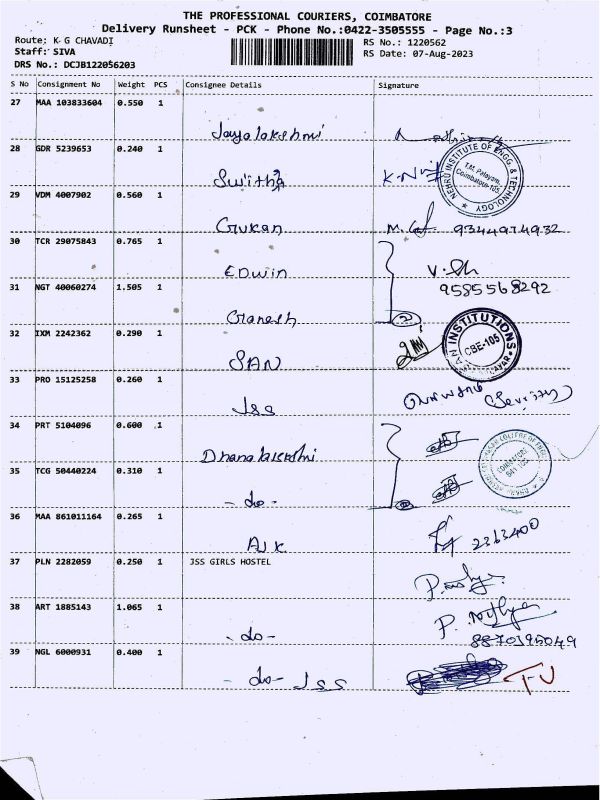 THE PROFESSIONAL COURIERS, COIMBATORE
Delivery Runsheet - PCK - Phone No.:0422-3505555 - Page No.:3
Route: K- G CHAVADI
Staff: SIVA
DRS No.: DCJB122056203
RS No.: 1220562
RS Date: 07-Aug-2023
S No Consignment No Weight PCS Consignee Details Signature
27 MAA 103833604 0.550 1
Jayalakshmi
28 GDR 5239653 0.240 1
NEHRU INSTITUTE OF ENGG. & TECHNOLOGY
T.M. Palayam, Coimbatore-105.
29 VDM 4007902 0.560 1
Gukan 9344974932
30 TCR 29075843 0.765 1
Edwin V.Sh
31 NGT 40060274 1.505 1
9585568292
Ganesh 2
32 IXM 2242362 0.290 1
SAN
SAN INSTITUTIONS
CBE-105
33 PRO 15125258 0.260 1
Jss
34 PRT 5104096 0.600 1
Dhanalakshmi
35 TCG 50440224 0.310 1
- do - 2
36 MAA 861011164 0.265 1
AJK 2363400
37 PLN 2282059 0.250 1 JSS GIRLS HOSTEL
38 ART 1885143 1.065 1
- do -
8870195049
39 NGL 6000931 0.400 1
- do - Jss